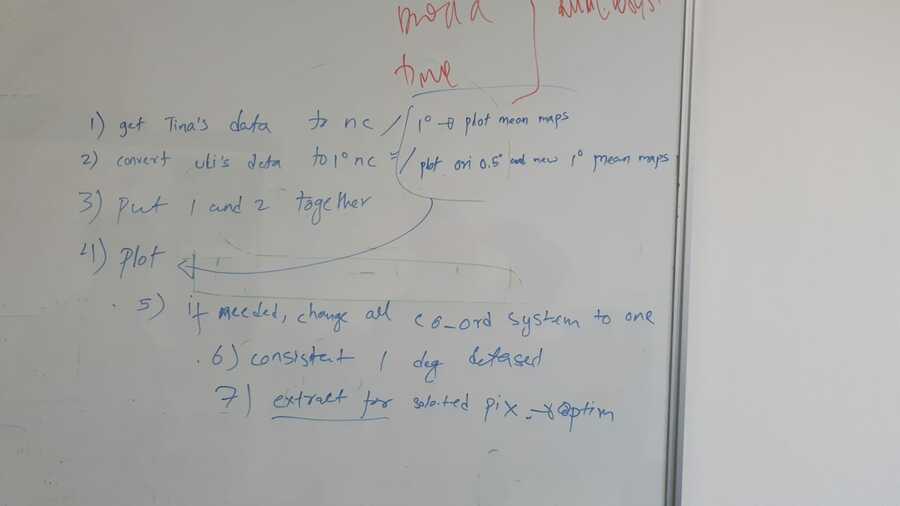 time
1) get Tina's data to nc / 1° → plot mean maps
2) convert uli's data to 1° nc = / plot ori 0.5° and new 1° mean maps
3) Put 1 and 2 together
4) plot
5) if needed, change all co-ord system to one
6) consistent 1 deg
7) extract for selected pix → optim